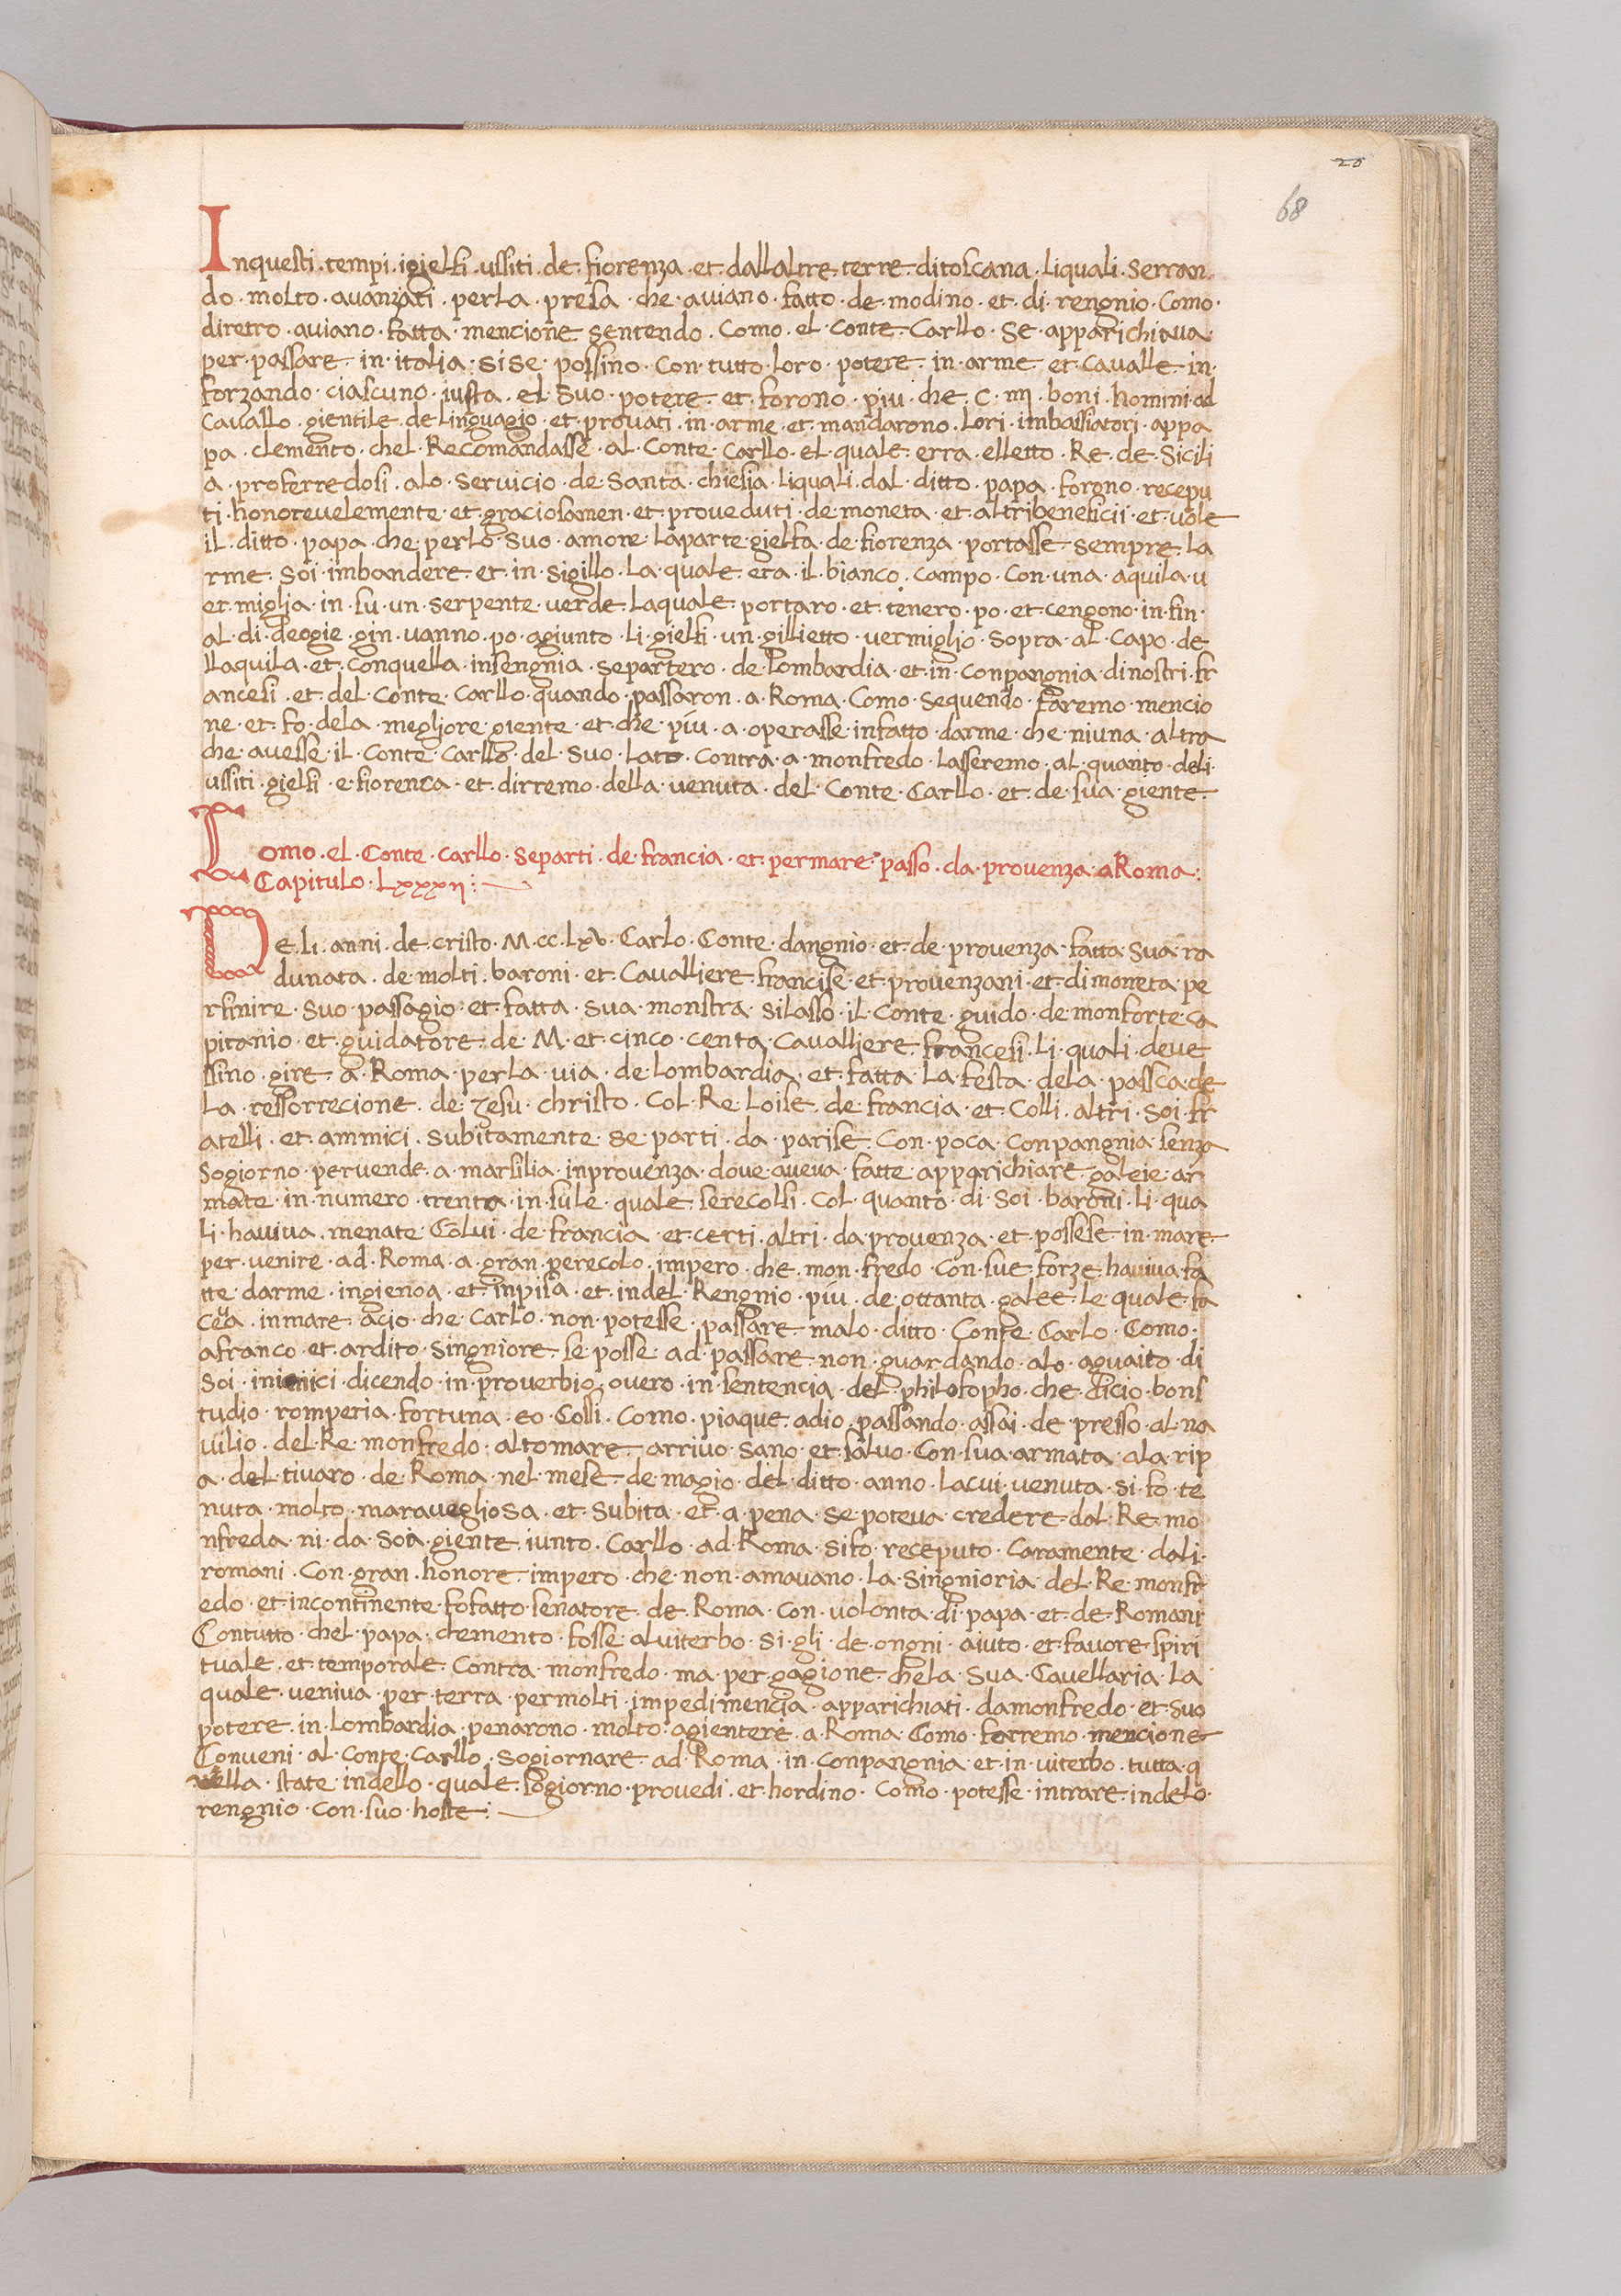 20
68
Inquesti · tempi · igielfi · ussiti · de · fiorenza · et · dallaltre · terre · ditoscana · liquali · serran
do · molto · avanzati · perla · presa · che · aviano · fatto · de · modino · et · di · rengnio · Como ·
diretro · aviano · fatta · mencione · sentendo · Como · el · conte · Carllo · se · apparichiava ·
per · passare · in · italia · si se · possino · con · tutto · loro · potere · in · arme · et · cavalle · in ·
forzando · ciascuno · iusta · el · suo · potere · et · forono · piu · che · c · iiii · boni · homini · ad
cavallo · gientile · de Linguagio · et · provati · in · arme · et · mandarono · Lori · imbassiatori · appa
pa · clemento · chel · Recomandasse · al · Conte · Carllo · el · quale · erra · elletto · Re · de · Sicili
a · proferredosi · alo · servicio · de · Santa · chiesia · liquali · dal · ditto · papa · forono · recepu
ti · honorevelemente · et · graciosamen · et · proveduti · de · moneta · et · altribeneficii · et · vole
il · ditto · papa · che · perlo · suo · amore · laparte · gielfa · de · fiorenza · portasse · sempre · la
rme · soi · imbandere · et · in · sigillo · la · quale · era · il · bianco · campo · con · una · aquila · v
er miglia · in · su · un · serpente · verde · laquale · portaro · et · tenero · po · et · cengono · in · fin ·
al · di · deogie · gin · vanno · po · agiunto · li · gielfi · un · gillietto · vermiglio · sopra · al · capo · de
llaquila · et · conquella · insengnia · separtero · de · lombardia · et · in · conpangnia · dinostri · fr
ancesi · et · del · conte · Carllo · quando · passaron · a · Roma · Como · sequendo · faremo · mencio
ne · et · fo · dela · megliore · giente · et · che · piu · a · operasse · infatto · darme · che · niuna · altra
che · avesse · il · Conte · Carllo · del · suo · lato · contra · a · monfredo · lasseremo · al · quanto · deli ·
ussiti · gielfi · e · fiorenca · et · dirremo · della · venuta · del · Conte · Carllo · et · de · sua · giente ·
Como · el · Conte · carllo · separti · de · francia · et · permare · passo · da · provenza · aRoma :
Capitulo · Lxxxii :
Ne · li · anni · de · cristo · M · cc · lxv · Carlo · Conte · dangnio · et · de · provenza · fatta · sua · ra
dunata · de · molti · baroni · et · Cavalliere · francise · et · provenzani · et · di moneta · pe
rfinire · suo · passagio · et · fatta · sua · monstra · silasso · il · conte · guido · de · monforte · ca
pitanio · et · guidatore · de · M · et · cinco · centa · Cavalliere · francesi · li · quali · deve
ssino · gire · a · Roma · perla · via · de · lombardia · et · fatta · la · festa · dela · passca · de
la · ressorrecione · de · zesu · christo · col · Re · loise · de · francia · et · colli · altri · soi · fr
atelli · et · ammici · subitamente · se · parti · da · parise · con · poca · conpangnia · senza
sogiorno · pervende · a · marsilia · inprovenza · dove · aveva · fatte · apparichiare · galeie · ar
mate · in · numero · trenta · in · sule · quale · serecolsi · col · quanto · di · soi · baroni · li · qua
li · haviva · menate · Colui · de · francia · et · certi · altri · da · provenza · et · possese · in · mare
per · venire · ad · Roma · a · gran · perecolo · impero · che · mon · fredo · con · sue · forze · haviva · fa
tte · darme · ingienoa · et · inpisa · et · indel · Rengnio · piu · de · ottanta · galee · le · quale · fa
ceva · inmare · acio · che · Carlo · non · potesse · passare · malo · ditto · Conte · Carlo · Como ·
afranco · et · ardito · singniore · se · posse · ad · passare · non · guardando · alo · aguaito · di
soi · inimici · dicendo · in · proverbio · overo · in · sentencia · del · philosopho · che · dicio · bons
tudio · romperia · fortuna · eo · cossi · Como · piaque · adio · passando · assai · de · presso · al · na
vilio · del · Re · monfredo · altomare · arrivo · sano · et · salvo · con · sua · armata · ala · rip
a · del · tivaro · de · Roma · nel · mese · de · magio · del · ditto · anno · lacui · venuta · si · fo · te
nuta · molto · maravegliosa · et · subita · et · a · pena · se · poteva · credere · dal · Re · mo
nfreda · ni · da · soa · giente · iunto · Carllo · ad · Roma · sifo · receputo · caramente · dali ·
romani · con · gran · honore · impero · che · non · amavano · la · singnioria · del · Re · monfr
edo · et · incontinente · fofatto · senatore · de · Roma · con · volonta · di · papa · et · de · Romani
Contutto · chel · papa · clemento · fosse · alviterbo · si · gli · de · ongni · aiuto · et · favore · spiri
tuale · et · temporale · contra · monfredo · ma · per · gagione · chela · sua · Cavellaria · la
quale · veniva · per · terra · permolti · impedimencia · apparichiati · damonfredo · et · suo
potere · in · lombardia · penarono · molto · agientere · a · Roma · Como · farremo · mencione
Conveni · al · conte · Carllo · sogiornare · ad · Roma · in · conpangnia · et · in · viterbo · tutta · q
uella · state · indello · quale · sogiorno · provedi · et · hordino · Como · potesse · intrare · indelo ·
rengnio · con · suo · hoste :